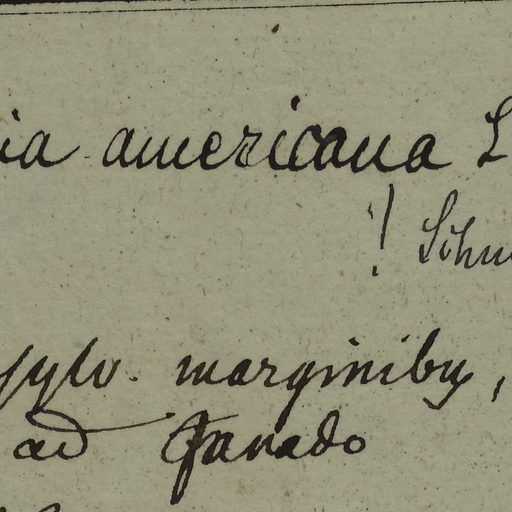 ia americana L
! Schu
sylv. marginibus,
ad Granado